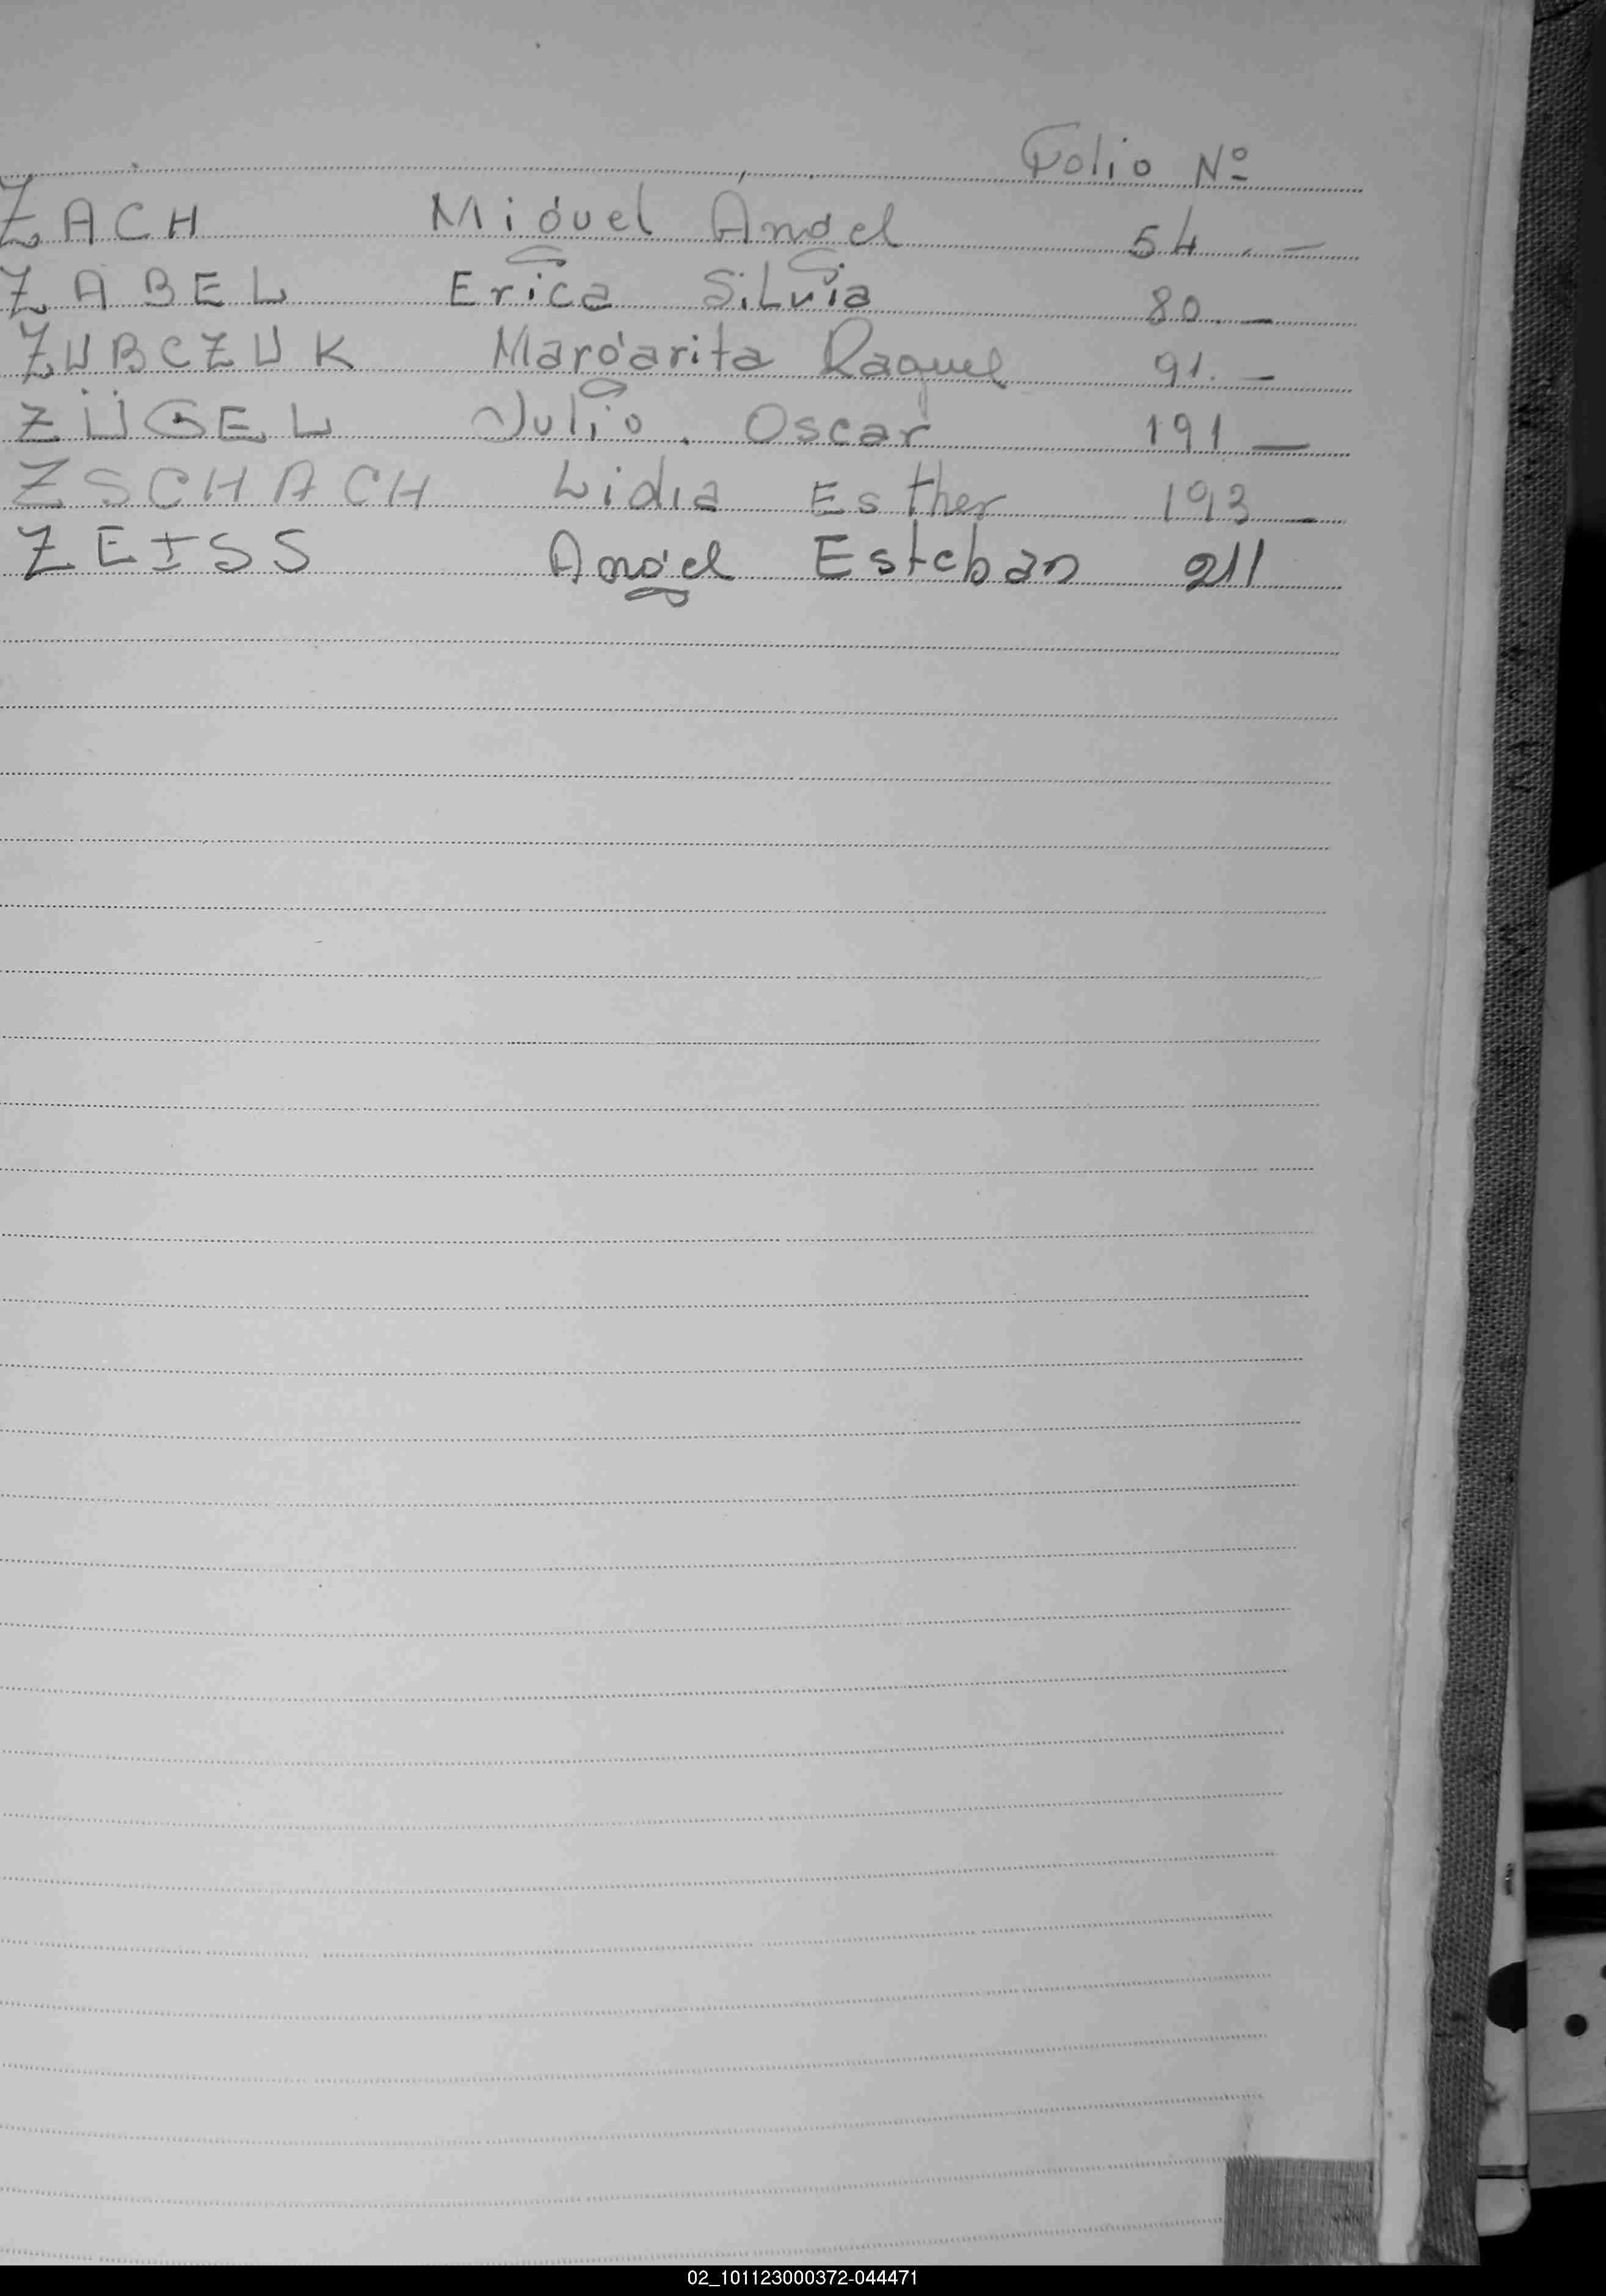 Folio Nº
ZACH Miguel Angel 54.-
ZABEL Erica Silvia 80.-
ZUBCZUK Margarita Raquel 91.-
ZÜGEL Julio. Oscar 191-
ZSCHACH Lidia Esther 193-
ZEISS Angel Esteban 211
02_101123000372-044471